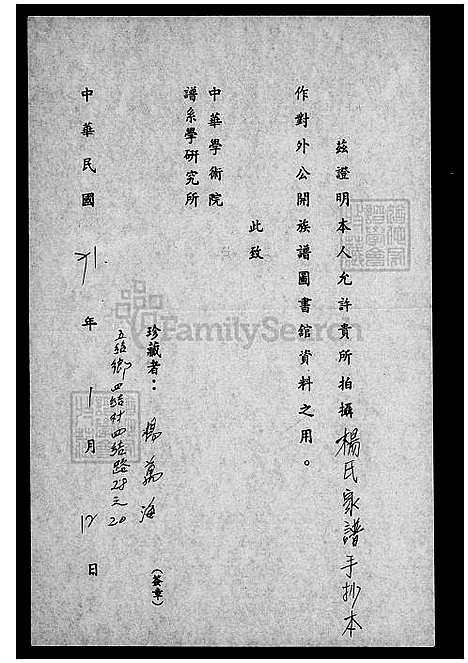 茲證明本人允許貴所拍攝楊氏家譜手抄本
作對外公開族譜圖書館資料之用。
此致
中華學術院
譜系學研究所
珍藏者：楊萬海（簽章）
五結鄉四結村四結路28元20
中華民國71年1月12日
FamilySearch